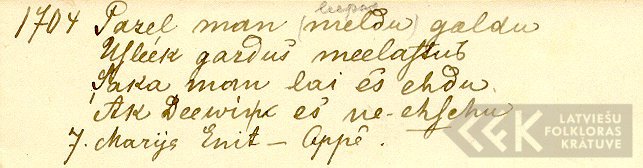 leepas
1704 Pazel man (meldu) galdu
Usleek gardus meelastus
Saka man lai es ehdu.
Ak Deewiņ es ne-ehschu
7. Marija Enit – Appē.
LATVIEŠU
FOLKLORAS
KRĀTUVE